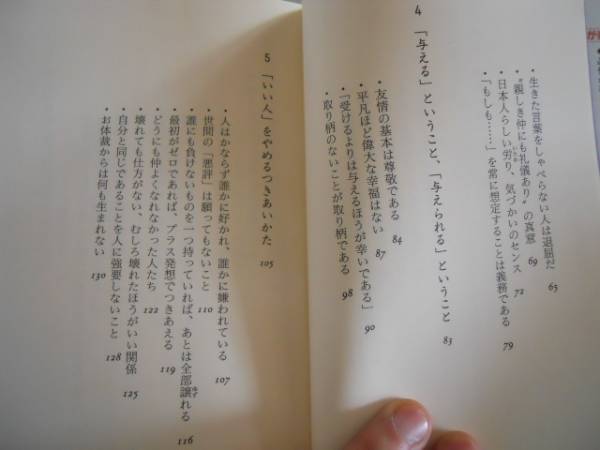 ・生きた言葉をしゃべらない人は退屈だ 65
・"親しき仲にも礼儀あり"の真意 69
・日本人らしい労り、気づかいのセンス 72
・「もしも……」を常に想定することは義務である 79
4 「与える」ということ、「与えられる」ということ 83
・友情の基本は尊敬である 84
・平凡ほど偉大な幸福はない 87
・「受けるよりは与えるほうが幸いである」 90
・取り柄のないことが取り柄である 98
5 「いい人」をやめるつきあいかた 105
・人はかならず誰かに好かれ、誰かに嫌われている 107
・世間の「悪評」は願ってもないこと 110
・誰にも負けないものを一つ持っていれば、あとは全部譲れる 116
・最初がゼロであれば、プラス発想でつきあえる 119
・どうにも仲よくなれなかった人たち 122
・壊れても仕方がない、むしろ壊れたほうがいい関係 125
・自分と同じであることを人に強要しないこと 128
・お体裁からは何も生まれない 130